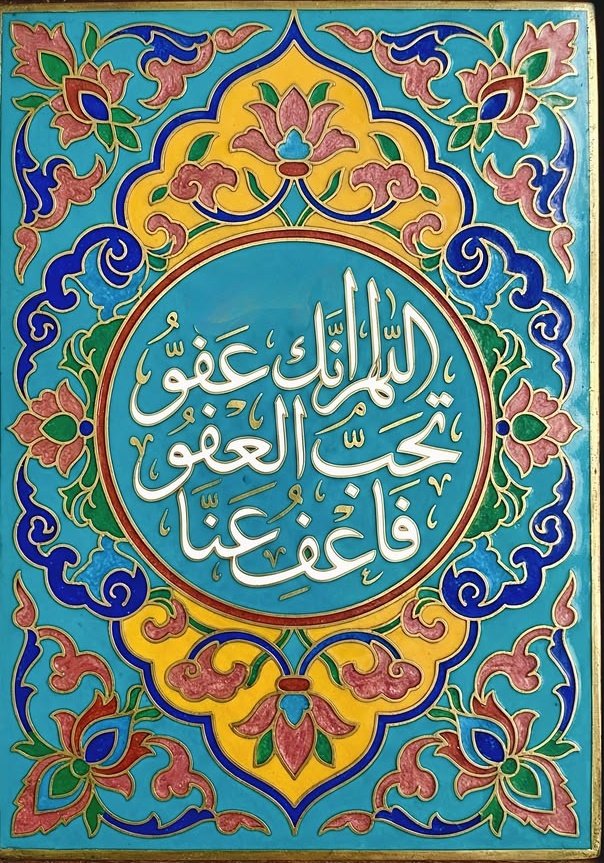 اللهم انّك عَفوٌّ
تحبّ العفوَ
فَاعْفُ عَنَّا